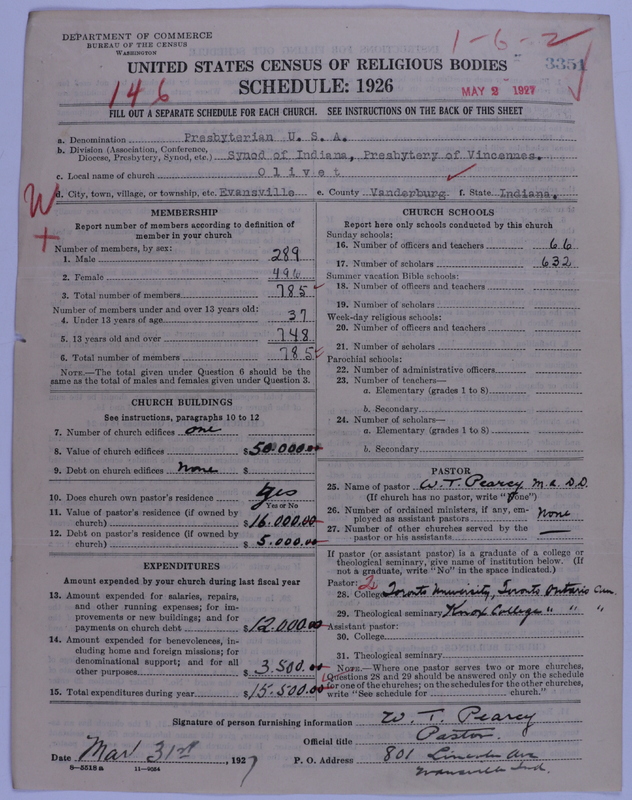 DEPARTMENT OF COMMERCE
BUREAU OF THE CENSUS
WASHINGTON
1-6-2
3351
UNITED STATES CENSUS OF RELIGIOUS BODIES
SCHEDULE: 1926
146
MAY 2 1927
FILL OUT A SEPARATE SCHEDULE FOR EACH CHURCH. SEE INSTRUCTIONS ON THE BACK OF THIS SHEET
a. Denomination Presbyterian U. S. A.
b. Division (Association, Conference, Diocese, Presbytery, Synod, etc.) Synod of Indiana, Presbytery of Vincennes.
c. Local name of church Olivet
d. City, town, village, or township, etc. Evansville e. County Vanderburg f. State Indiana.
W
+
MEMBERSHIP
Report number of members according to definition of
member in your church
Number of members, by sex:
1. Male 289
2. Female 496
3. Total number of members 785
Number of members under and over 13 years old:
4. Under 13 years of age 37
5. 13 years old and over 748
6. Total number of members 785
NOTE.—The total given under Question 6 should be
same as the total of males and females given under Question 3.
CHURCH BUILDINGS
See instructions, paragraphs 10 to 12
7. Number of church edifices one
8. Value of church edifices $50.000.00
9. Debt on church edifices None $
10. Does church own pastor's residence yes
Yes or No
11. Value of pastor's residence (if owned by
church) $16.000.00
12. Debt on pastor's residence (if owned by
church) $5.000.00
EXPENDITURES
Amount expended by your church during last fiscal year
13. Amount expended for salaries, repairs,
and other running expenses; for im-
provements or new buildings; and for
payments on church debt $12.000.00
14. Amount expended for benevolences, in-
cluding home and foreign missions; for
denominational support; and for all
other purposes $3.500.00
15. Total expenditures during year $15.500.00
CHURCH SCHOOLS
Report here only schools conducted by this church
Sunday schools:
16. Number of officers and teachers 66
17. Number of scholars 632
Summer vacation Bible schools:
18. Number of officers and teachers
19. Number of scholars
Week-day religious schools:
20. Number of officers and teachers
21. Number of scholars
Parochial schools:
22. Number of administrative officers
23. Number of teachers—
a. Elementary (grades 1 to 8)
b. Secondary
24. Number of scholars—
a. Elementary (grades 1 to 8)
b. Secondary
PASTOR
25. Name of pastor W. T. Pearcy M.A. D.D.
(If church has no pastor, write "None")
26. Number of ordained ministers, if any, em-
ployed as assistant pastors None
27. Number of other churches served by the
pastor or his assistants —
If pastor (or assistant pastor) is a graduate of a college or
theological seminary, give name of institution below. (If
not a graduate, write "No" in the space indicated.)
Pastor: 2
28. College Toronto University, Toronto Ontario Can.
29. Theological seminary Knox College " " "
Assistant pastor:
30. College
31. Theological seminary
NOTE.—Where one pastor serves two or more churches,
Questions 28 and 29 should be answered only on the schedule
for one of the churches; on the schedules for the other churches,
write "See schedule for church."
Signature of person furnishing information W. T. Pearcy
Official title Pastor.
Date Mar 31st, 1927 P. O. Address 801 Lincoln Ave
Evansville Ind.
8—5518a 11—9054